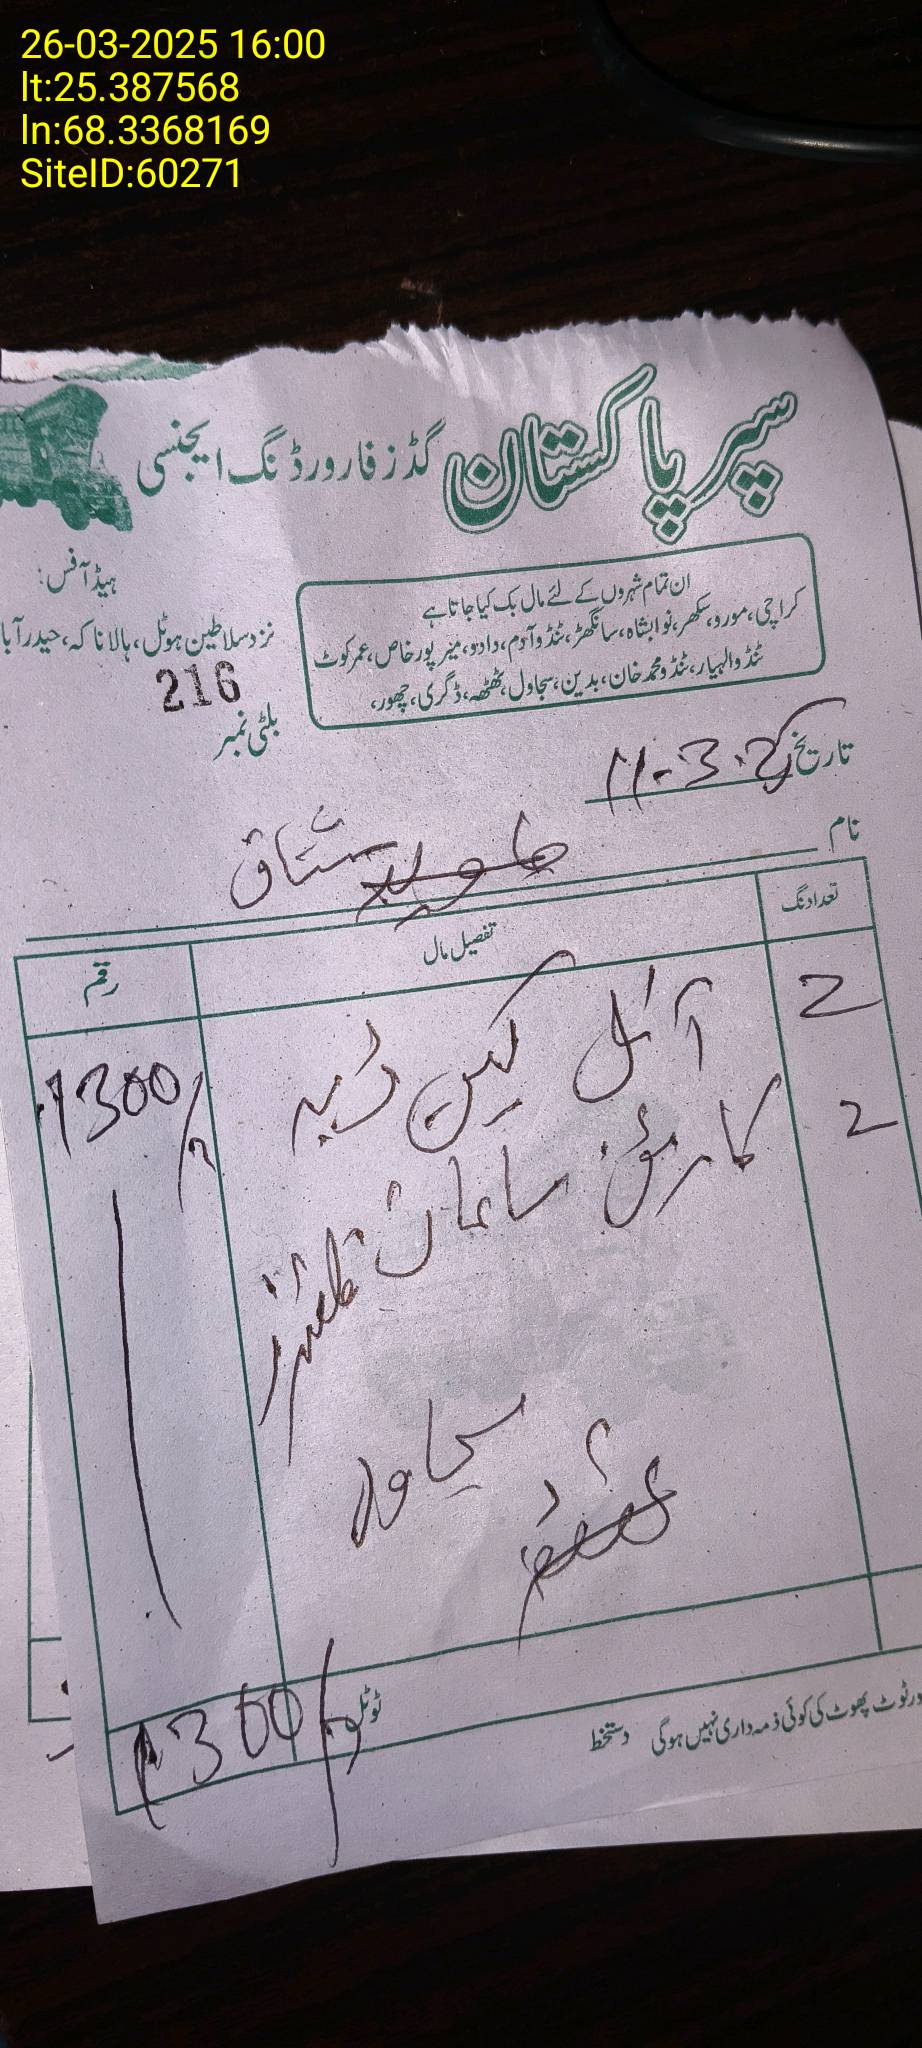 26-03-2025 16:00
lt:25.387568
ln:68.3368169
SiteID:60271
سپر پاکستان گڈز فارورڈنگ ایجنسی
ان تمام شہروں کے لئے مال بک کیا جاتا ہے
کراچی، مورو، سکھر، نوابشاہ، سانگھڑ، ٹنڈو آدم، دادو، میرپور خاص، عمرکوٹ
ٹنڈوالہیار، ٹنڈو محمد خان، بدین، سجاول، ٹھٹھہ، ڈگری، چھور،
ہیڈ آفس:
نزد سلاطین ہوٹل، ہالا ناکہ، حیدرآبا
216
بلٹی نمبر
تاریخ 11-3-25
نام مشتاق
تعداد نگ تفصیل مال رقم
2 آئل کین ڈبہ 1300/
2 کارٹون سامان فلٹرز
سجاول
ٹوٹل 1300/
ور ٹوٹ پھوٹ کی کوئی ذمہ داری نہیں ہوگی دستخط